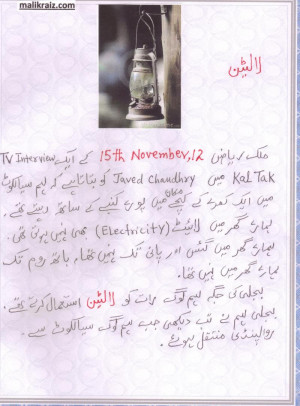 malikraiz.com
لالٹین
ملک ریاض 15th November,12 کے ایک TV Interview
Kal Tak میں Javed Chaudhry کو بتاتا ہے کہ ہم سیالکوٹ
میں ایک کمرے کے کچے مکان میں پورے کنبے کے ساتھ رہتے تھے۔
ہمارے گھر میں لائیٹ (Electricity) بھی نہیں ہوتی تھی۔
ہمارے گھر میں گیس اور پانی تک نہیں تھا۔ باتھ روم تک
ہمارے گھر میں نہیں تھا۔
بجلی کی جگہ ہم لوگ رات کو لالٹین استعمال کرتے تھے۔
بجلی ہم نے تب دیکھی جب ہم لوگ سیالکوٹ سے
راولپنڈی منتقل ہوئے۔